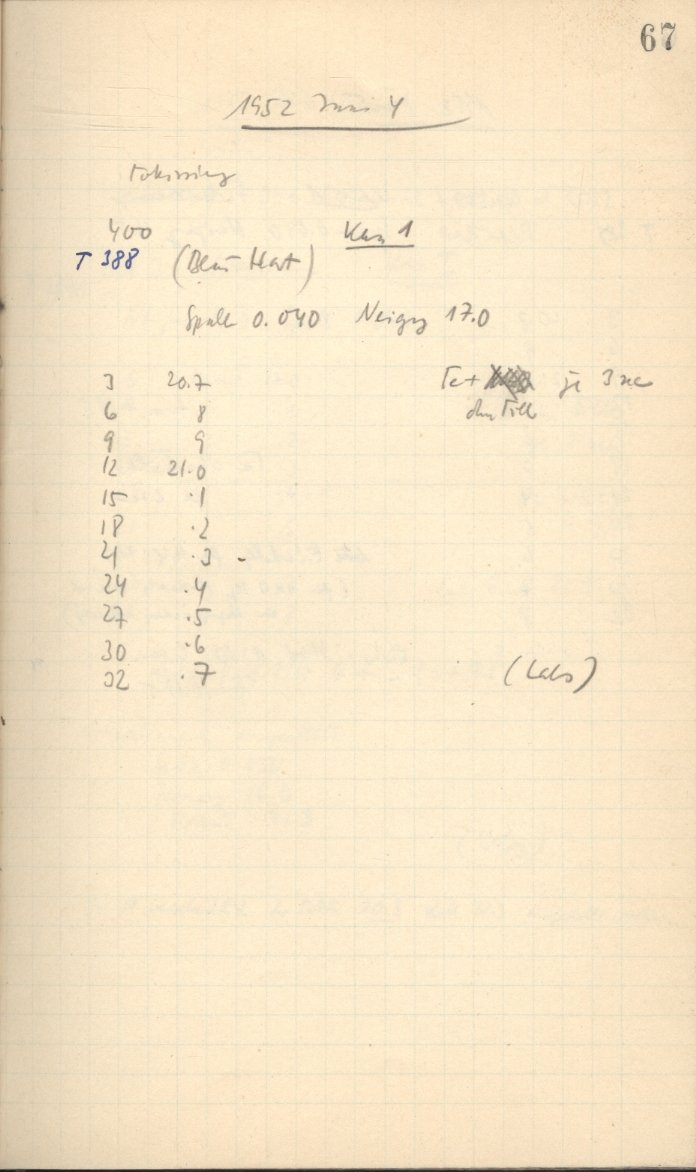 67
1952 Juni 4
Fokussierg
400 Kam 1
T 388 (Blau Hart)
Spalt 0.040 Neigg 17.0
3 20.7 Fe+ je 3 sec
6 8 ohne Filt
9 9
12 21.0
15 .1
18 .2
21 .3 -
24 .4
27 .5
30 .6
32 .7 (Labs)